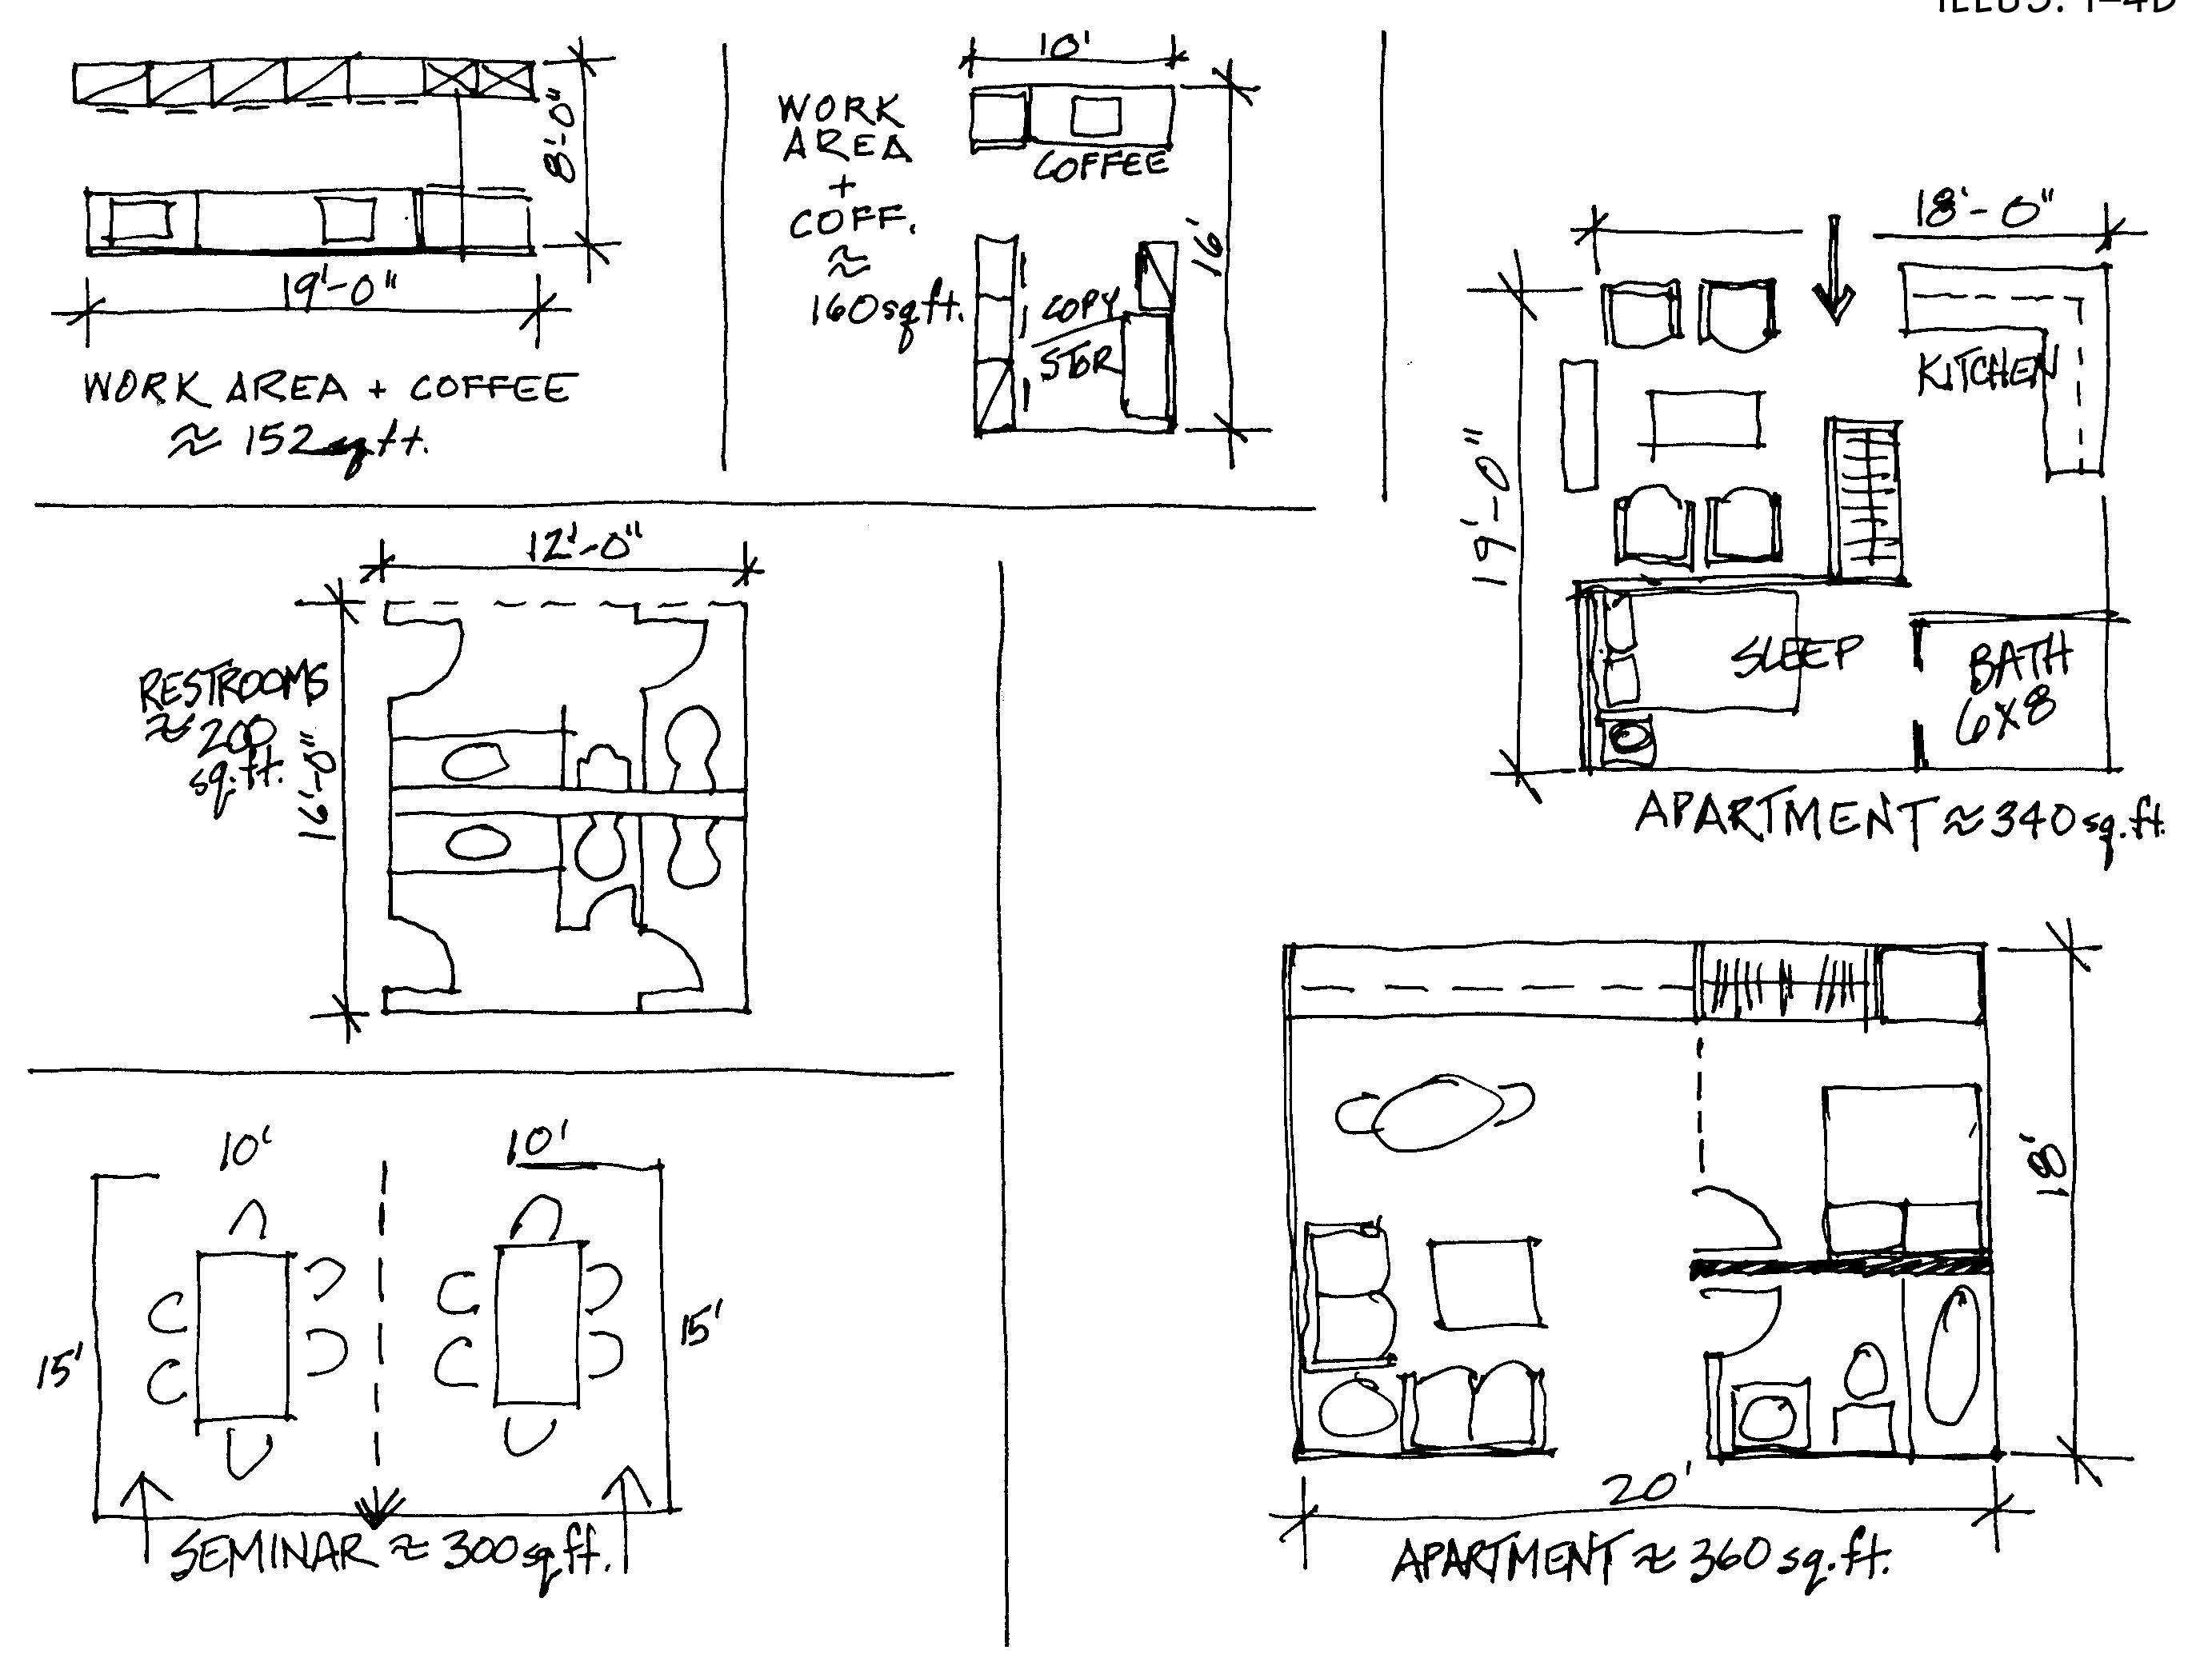 ILLUS. 1-4B
8'-0"
19'-0"
WORK AREA + COFFEE
≈ 152 sq ft.
10'
WORK
AREA
+
COFF.
≈
160 sq ft.
COFFEE
16'
COPY
STOR
18'-0"
KITCHEN
19'-0"
SLEEP
BATH
6X8
APARTMENT ≈ 340 sq. ft.
12'-0"
RESTROOMS
≈ 200
sq. ft.
16'-0"
10'
10'
15'
15'
SEMINAR ≈ 300 sq. ft.
18'
20'
APARTMENT ≈ 360 sq. ft.